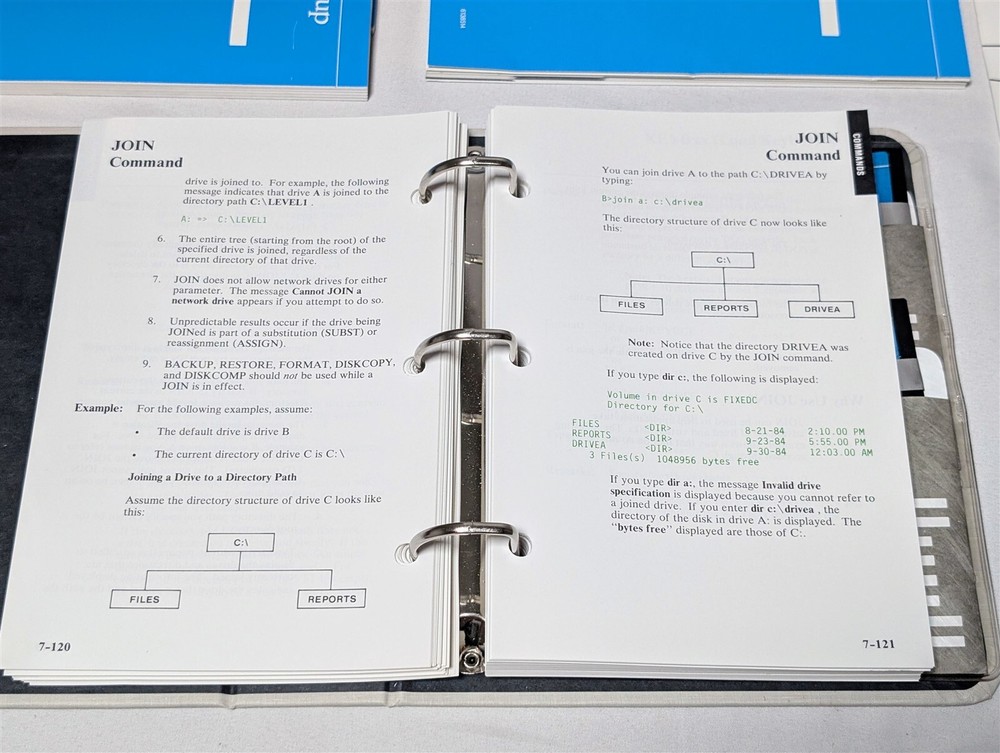 JOIN
Command
drive is joined to. For example, the following
message indicates that drive A is joined to the
directory path C:\LEVEL1 .
A: => C:\LEVEL1
6. The entire tree (starting from the root) of the
specified drive is joined, regardless of the
current directory of that drive.
7. JOIN does not allow network drives for either
parameter. The message Cannot JOIN a
network drive appears if you attempt to do so.
8. Unpredictable results occur if the drive being
JOINed is part of a substitution (SUBST) or
reassignment (ASSIGN).
9. BACKUP, RESTORE, FORMAT, DISKCOPY,
and DISKCOMP should not be used while a
JOIN is in effect.
Example: For the following examples, assume:
• The default drive is drive B
• The current directory of drive C is C:\
Joining a Drive to a Directory Path
Assume the directory structure of drive C looks like
this:
C:\
FILES REPORTS
7-120
JOIN
Command
COMMANDS
You can join drive A to the path C:\DRIVEA by
typing:
B>join a: c:\drivea
The directory structure of drive C now looks like
this:
C:\
FILES REPORTS DRIVEA
Note: Notice that the directory DRIVEA was
created on drive C by the JOIN command.
If you type dir c:, the following is displayed:
Volume in drive C is FIXEDC
Directory for C:\
FILES <DIR> 8-21-84 2:10.00 PM
REPORTS <DIR> 9-23-84 5:55.00 PM
DRIVEA <DIR> 9-30-84 12:03.00 AM
3 Files(s) 1048956 bytes free
If you type dir a:, the message Invalid drive
specification is displayed because you cannot refer to
a joined drive. If you enter dir c:\drivea , the
directory of the disk in drive A: is displayed. The
"bytes free" displayed are those of C:.
7-121